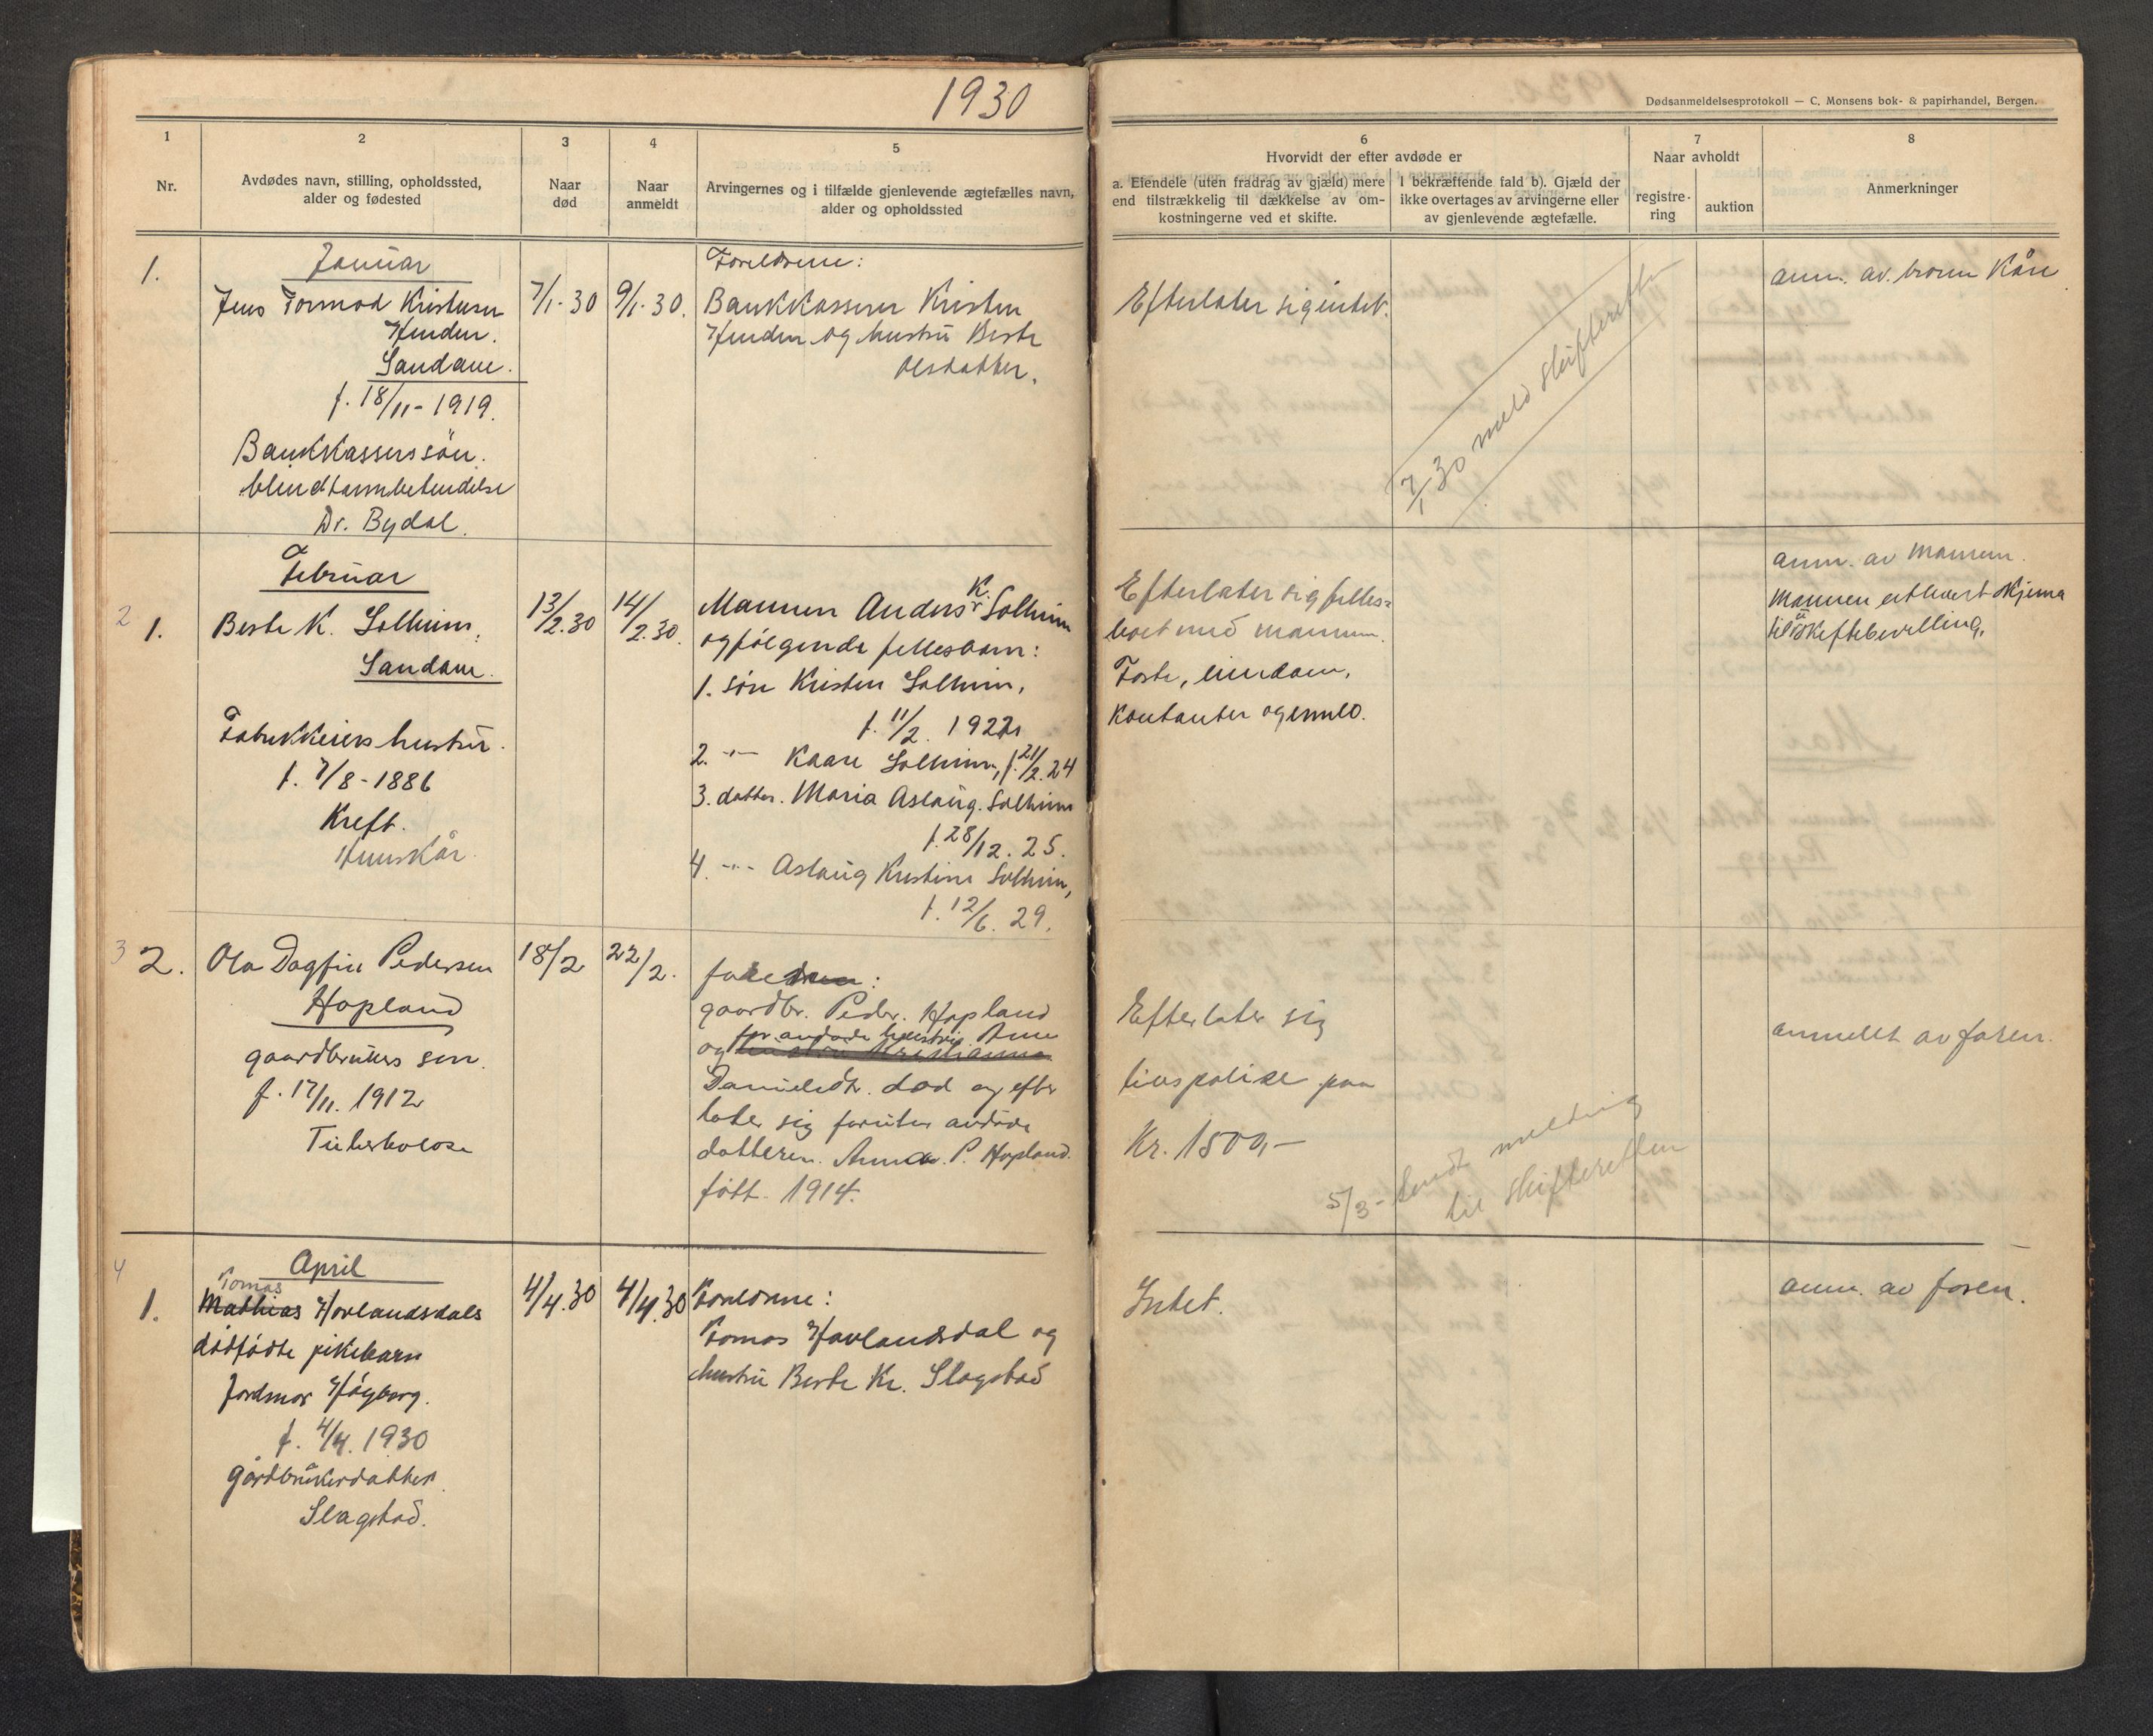 1930
Dødsanmeldelsesprotokoll — C. Monsens bok- & papirhandel, Bergen.
1
2
3
4
5
6
7
8
Nr.
Avdødes navn, stilling, opholdssted,
alder og fødested
Naar
død
Naar
anmeldt
Arvingernes og i tilfælde gjenlevende ægtefælles navn,
alder og opholdssted
Hvorvidt der efter avdøde er
a. Eiendele (uten fradrag av gjæld) mere
end tilstrækkelig til dækkelse av om-
kostningerne ved et skifte.
I bekræftende fald b). Gjæld der
ikke overtages av arvingerne eller
av gjenlevende ægtefælle.
Naar avholdt
registre-
ring
auktion
Anmerkninger
Januar
1.
Jens Tormod Kristensen
Henden.
Sandane.
f. 18/11-1919.
Bankkasserssön.
blindtarmbetendelse
Dr. Bydal.
7/1-30
9/1-30.
Foreldrene:
Bankkasserer Kristen
Henden og hustru Berte
Olsdatter.
Efterlater sig intet.
7/1 30 meld skifteretten
anm. av. broren Kåre
Februar
2
1.
Berte K. Solheim,
Sandane.
Fabrikkeiers hustru.
f. 7/8-1886
Kreft.
13/2.30
14/2.30.
Mannen Anders K. Solheim
og følgende fellesbarn:
1. søn Kristen Solheim,
f. 11/2. 1922
2. -"- Kaare Solheim, f. 21/2.24
3. datter. Maria Aslaug. Solheim
f. 28/12. 25.
4. -"- Aslaug Kristine Solheim,
f. 12/6. 29.
Efterlater sig felles-
boet med mannen.
Faste, eiendom,
kontanter og
anm. av mannen.
Mannen utlevert skjema
til uskiftebevilling.
3
2.
Ola Dagfin Pedersen
Hopland
gaardbrukers søn.
f. 17/11. 1912
Tuberkolose
18/2
22/2.
faren:
gaardbr. Peder. Hopland
og for avdøde hustru Anne
Danielsdtr. død og efter
later sig foruten avdøde
datteren. Anna. P. Hopland.
født. 1914.
Efterlater sig
livspolise paa
Kr. 1500,-
5/3- sendt melding
til skifteretten
anmeldt av faren.
April
4
1.
Tomas
Mathias Hovlandsdals
dödfödte pikebarn
Jordmor Högberg.
f. 4/4. 1930
Gårdbrukerdatter.
Slagstad.
4/4.30
4/4.30
Foreldrene:
Tomas Hovlandsdal og
hustru Berte Kr. Slagstad
Intet.
anm. av faren.